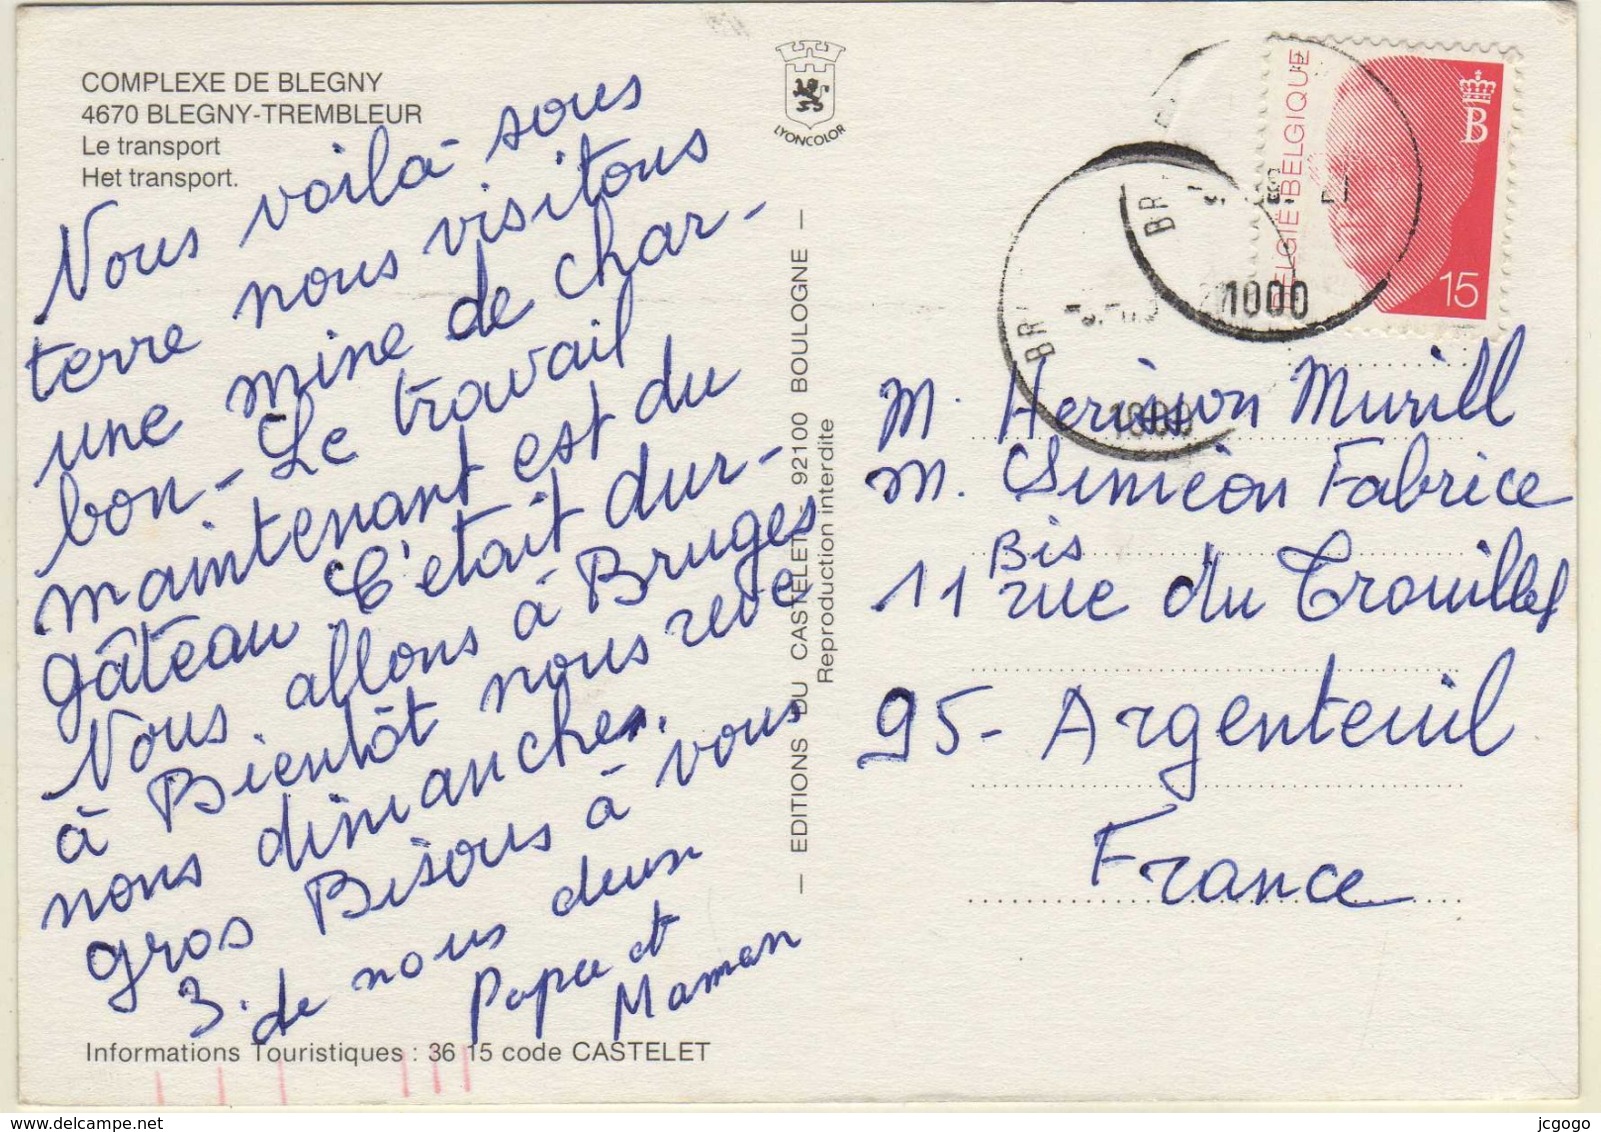 COMPLEXE DE BLEGNY
4670 BLEGNY-TREMBLEUR
Le transport
Het transport.
Nous voilà sous
terre nous visitons
une mine de char-
bon - Le travail
maintenant est du
gâteau. C'était dur -
Nous allons à Bruges
à Bientôt nous reve
nons dimanche.
gros Bisous à vous
3. de nous deux
Papa et
Maman
Informations Touristiques : 36 15 code CASTELET
LYONCOLOR
— EDITIONS DU CASTELET - 92100 BOULOGNE —
Reproduction interdite
BELGIË-BELGIQUE
B
15
1000
1000
M. Herisson Murill
M. Siméon Fabrice
11 Bis rue du Trouillet
95 - Argenteuil
France
jcgogo